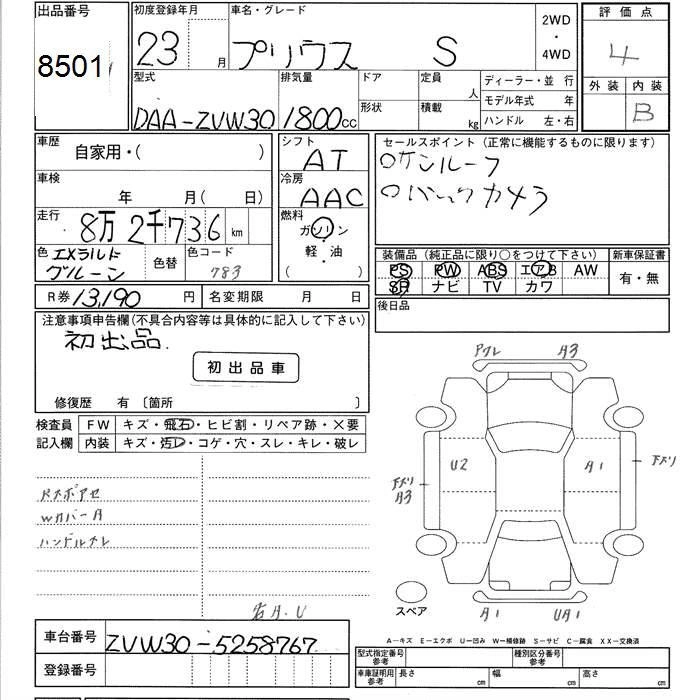 出品番号
8501
初度登録年月
23 月
車名・グレード
プリウス S
2WD
・
4WD
評価点
4
外装 内装
B
型式
DAA-ZVW30
排気量
1800cc
ドア
形状
定員
人
積載
kg
ディーラー・並 行
モデル年式 年
ハンドル 左・右
車歴
自家用・( )
シフト
AT
セールスポイント (正常に機能するものに限ります)
ロサンルーフ
ロバックカメラ
車検
年 月( 日)
冷房
AAC
走行
8万2千736 km
燃料
ガソリン
軽・油
( )
色
エメラルド
グルーン
色替
色コード
783
装備品 (純正品に限り○をつけて下さい)
PS PW ABS エアB AW
SR ナビ TV カワ
新車保証書
有・無
R券 13,190 円
名変期限 月 日
後日品
注意事項申告欄(不具合内容等は具体的に記入して下さい)
初出品.
初出品車
修復歴 有 〔箇所 〕
検査員
記入欄
FW キズ・飛石・ヒビ割・リペア跡・×要
内装 キズ・汚レ・コゲ・穴・スレ・キレ・破レ
Wカバー A
ハンドルスレ
A3
U2
A1
下ズリ
A3
下ズリ
スペア
A1
UA1
右A.U
A−キズ E−エクボ U−凹み W−補修跡 S−サビ C−腐食 XX−交換済
車台番号
ZVW30-5258767
登録番号
型式指定番号
参考
種別区分番号
参考
車庫証明用
参考
長さ cm
幅 cm
高さ cm